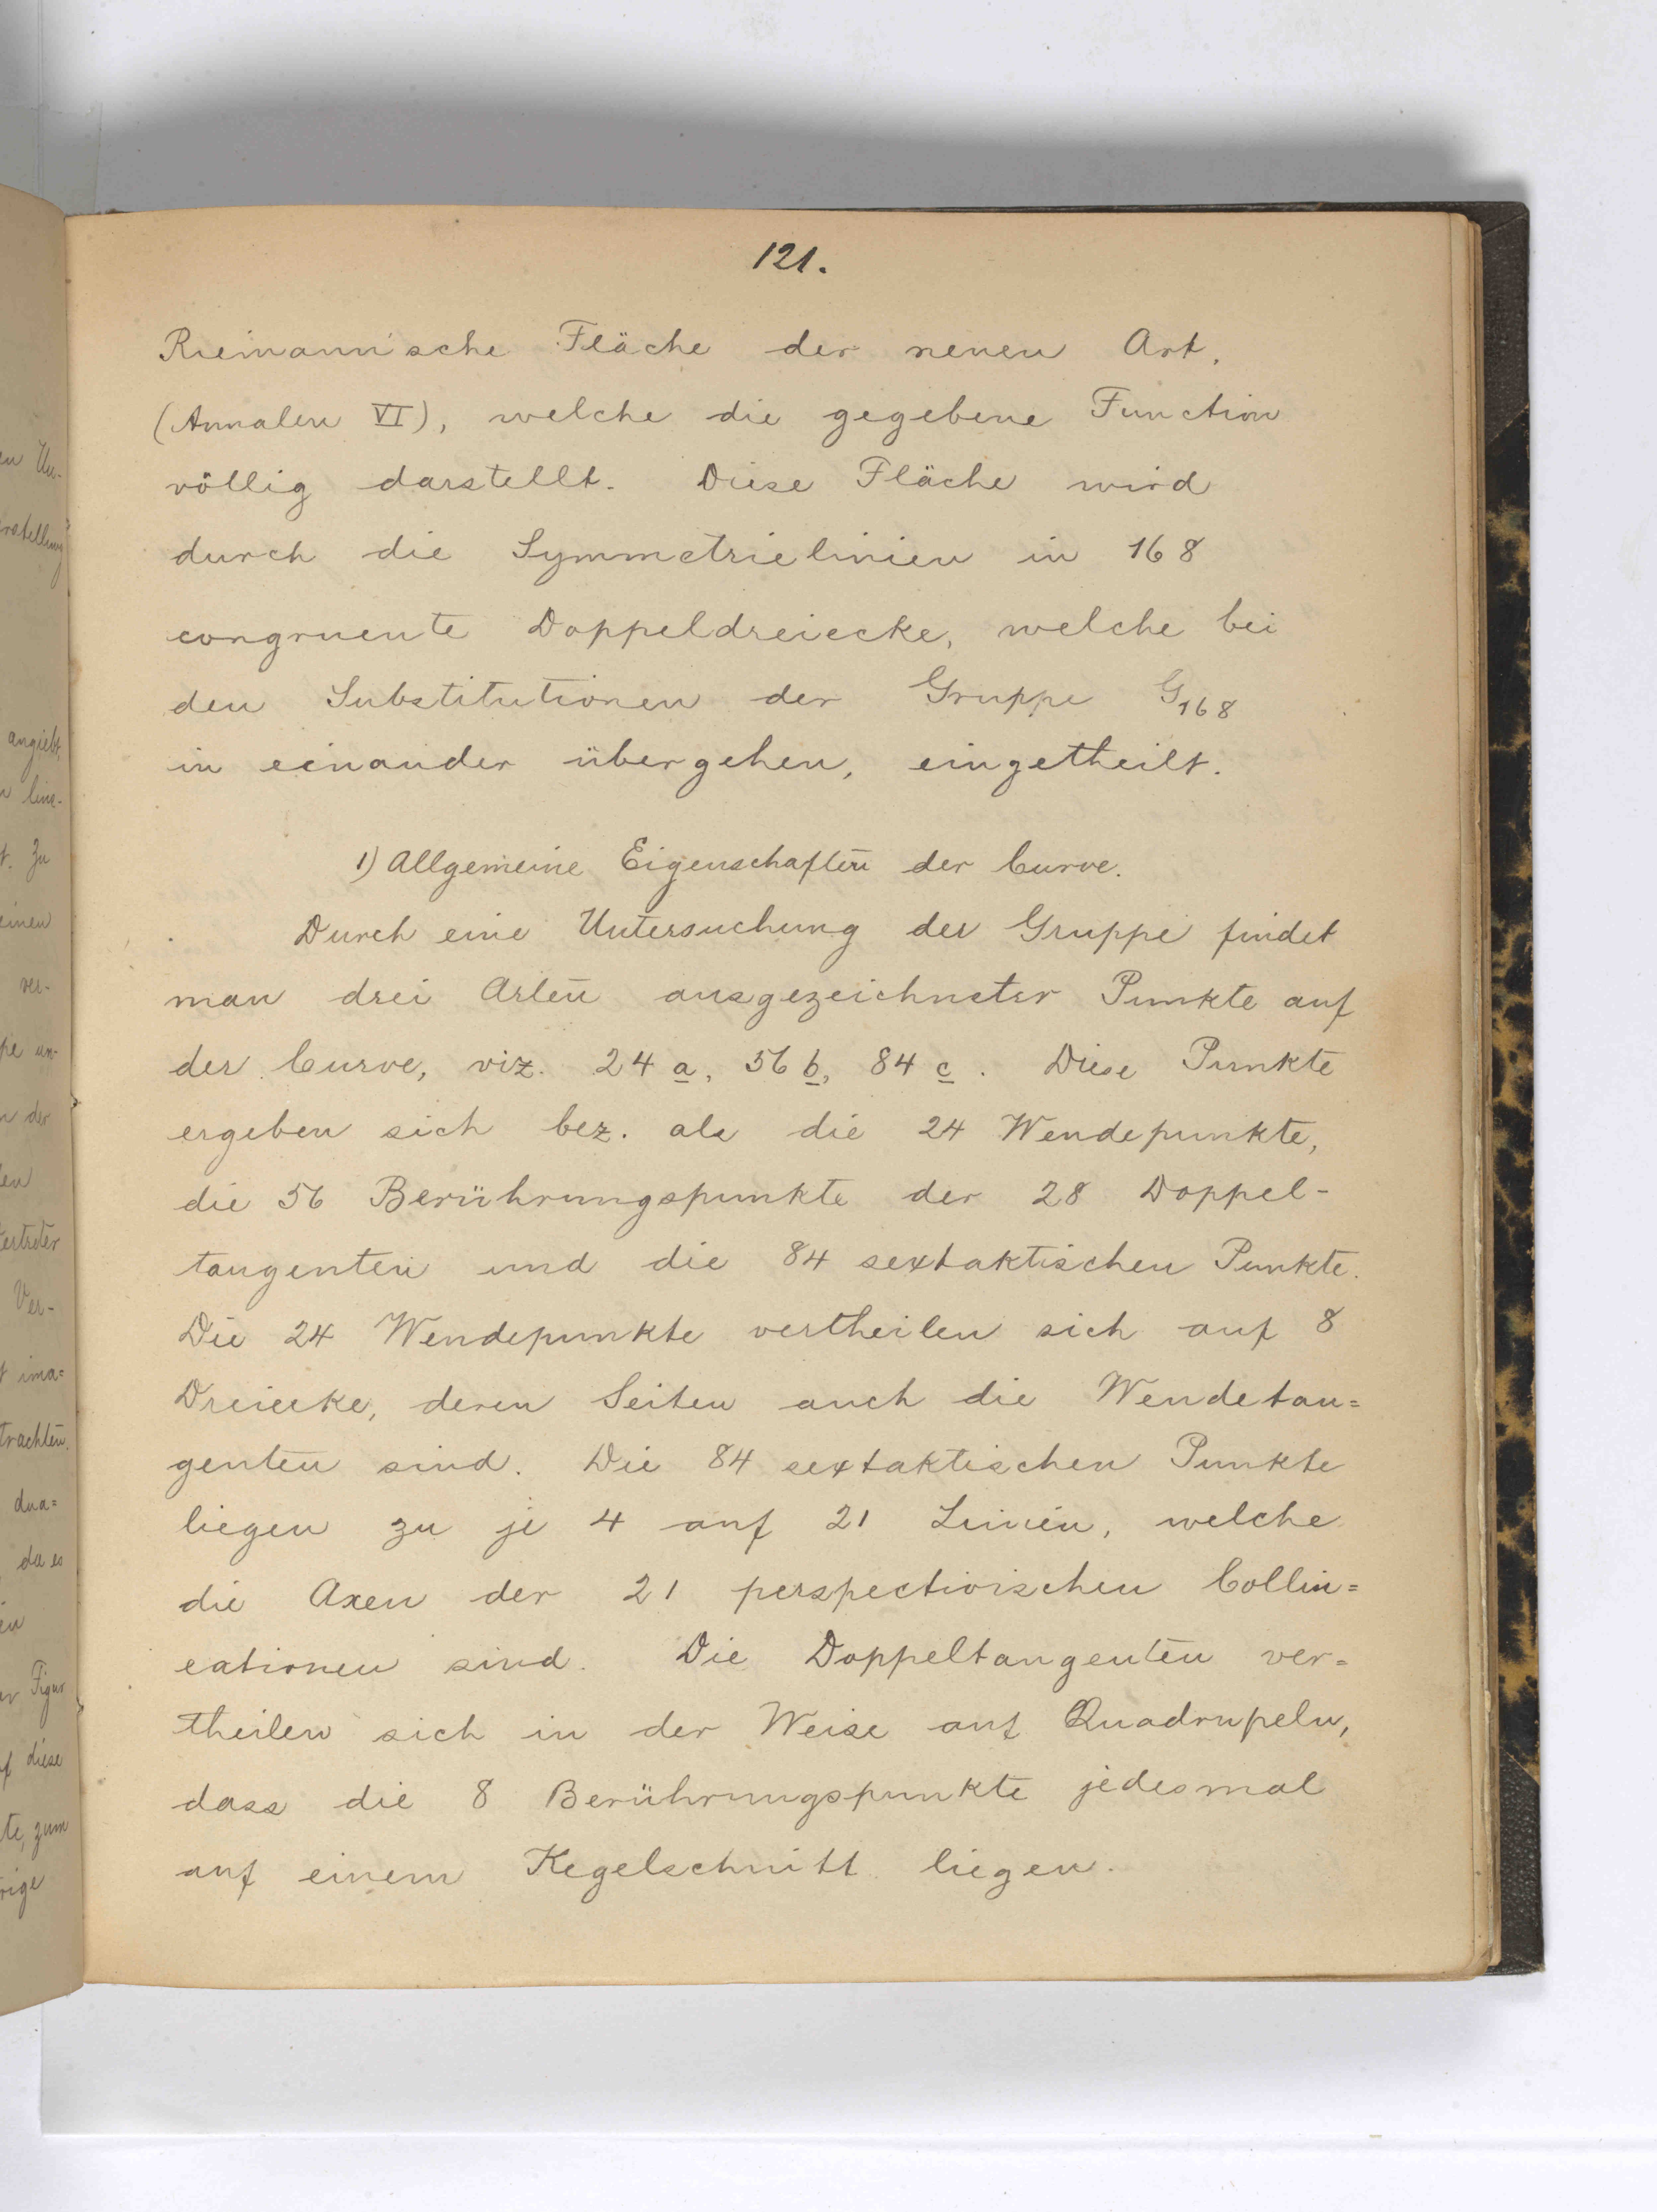 121.
Riemann'sche Fläche der neuen Art.
(Annalen VI), welche die gegebene Function
völlig darstellt. Diese Fläche wird
durch die Symmetrielinien in 168
congruente Doppeldreiecke, welche bei
den Substitutionen der Gruppe G₁₆₈
in einander übergehen, eingetheilt.
1) Allgemeine Eigenschaften̄ der Curve.
Durch eine Untersuchung der Gruppe findet
man drei Arten̄ ausgezeichneter Punkte auf
der Curve, viz. 24 a, 56 b, 84 c. Diese Punkte
ergeben sich bez. als die 24 Wendepunkte,
die 56 Berührungspunkte der 28 Doppel-
tangenten und die 84 sextaktischen Punkte.
Die 24 Wendepunkte vertheilen sich auf 8
Dreiecke, deren Seiten auch die Wendetan=
genten sind. Die 84 sextaktischen Punkte
liegen zu je 4 auf 21 Linien, welche
die Axen der 21 perspectivischen Collin=
eationen sind. Die Doppeltangenten ver=
theilen sich in der Weise auf Quadrupeln,
dass die 8 Berührungspunkte jedesmal
auf einem Kegelschnitt liegen.
angiebt,
Zu
einen
ver-
der
Ver-
ima=
dua=
da es
Figur
diese
zum